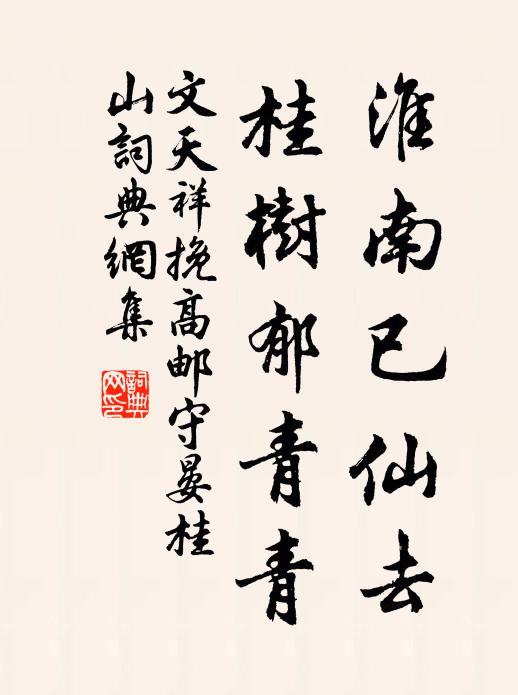 淮南已仙去
桂樹郁青青
文天祥挽高邮守晏桂
山詞典網集
詞典
网印